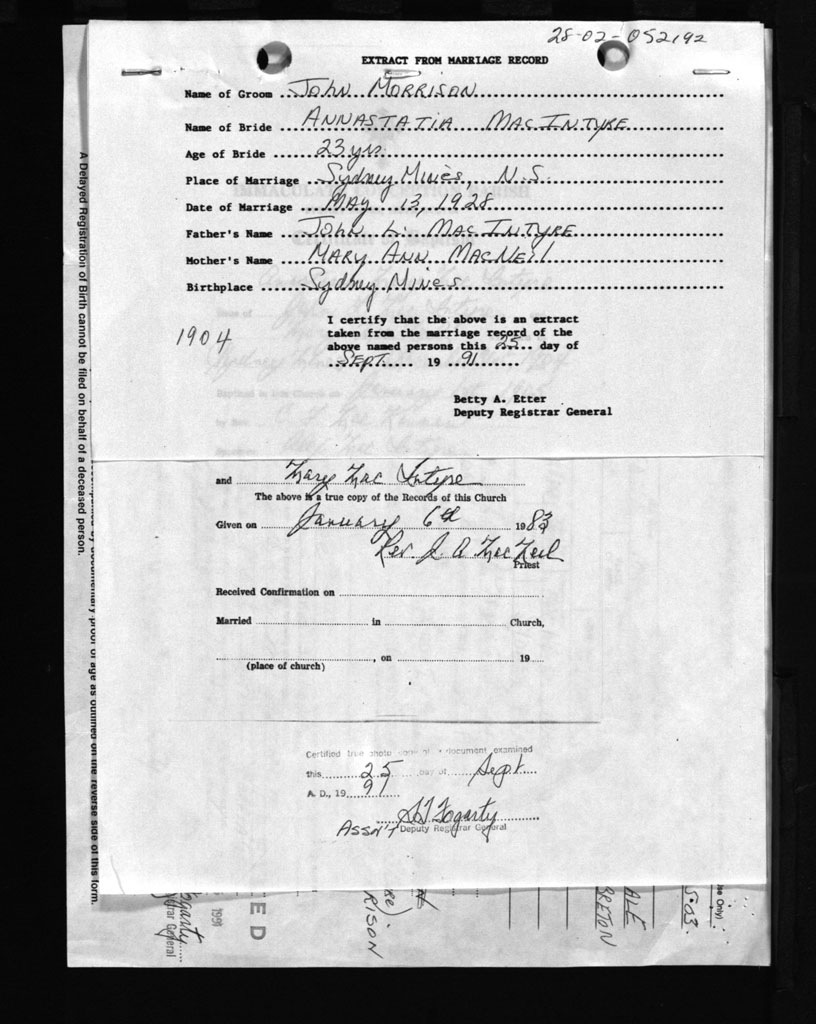 28-02-052192
EXTRACT FROM MARRIAGE RECORD
Name of Groom ... JOHN MORRISON
Name of Bride ... ANNASTATIA MACINTYRE
Age of Bride ... 23 yrs.
Place of Marriage ... Sydney Mines, N.S.
Date of Marriage ... MAY 13, 1928
Father's Name ... JOHN L. MACINTYRE
Mother's Name ... MARY ANN MACNEIL
Birthplace ... Sydney Mines
I certify that the above is an extract
taken from the marriage record of the
above named persons this 25 day of
SEPT. 19 91
1904
Betty A. Etter
Deputy Registrar General
and Mary Mac Intyre
The above is a true copy of the Records of this Church
Given on January 6th 1983
Rev. J. A MacNeil
Priest
Received Confirmation on
Married in Church,
, on 19
(place of church)
Certified true photo copy of a document examined
this 25 day of Sept
A. D., 19 91
S T Fogarty
Ass't Deputy Registrar General
A Delayed Registration of Birth cannot be filed on behalf of a deceased person.
by documentary proof of age as outlined on the reverse side of this form.
Fogarty
trar General
1991
ED
RE)
RISON
BRETON
ALE
5-03
se Only)